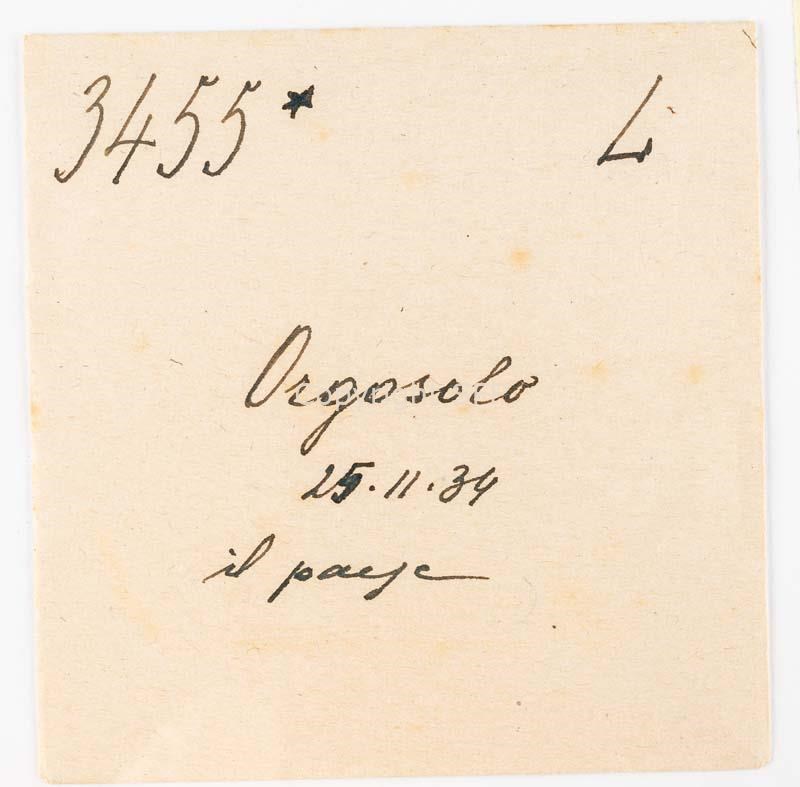 3455* L
Orgosolo
25.11.34
il paese